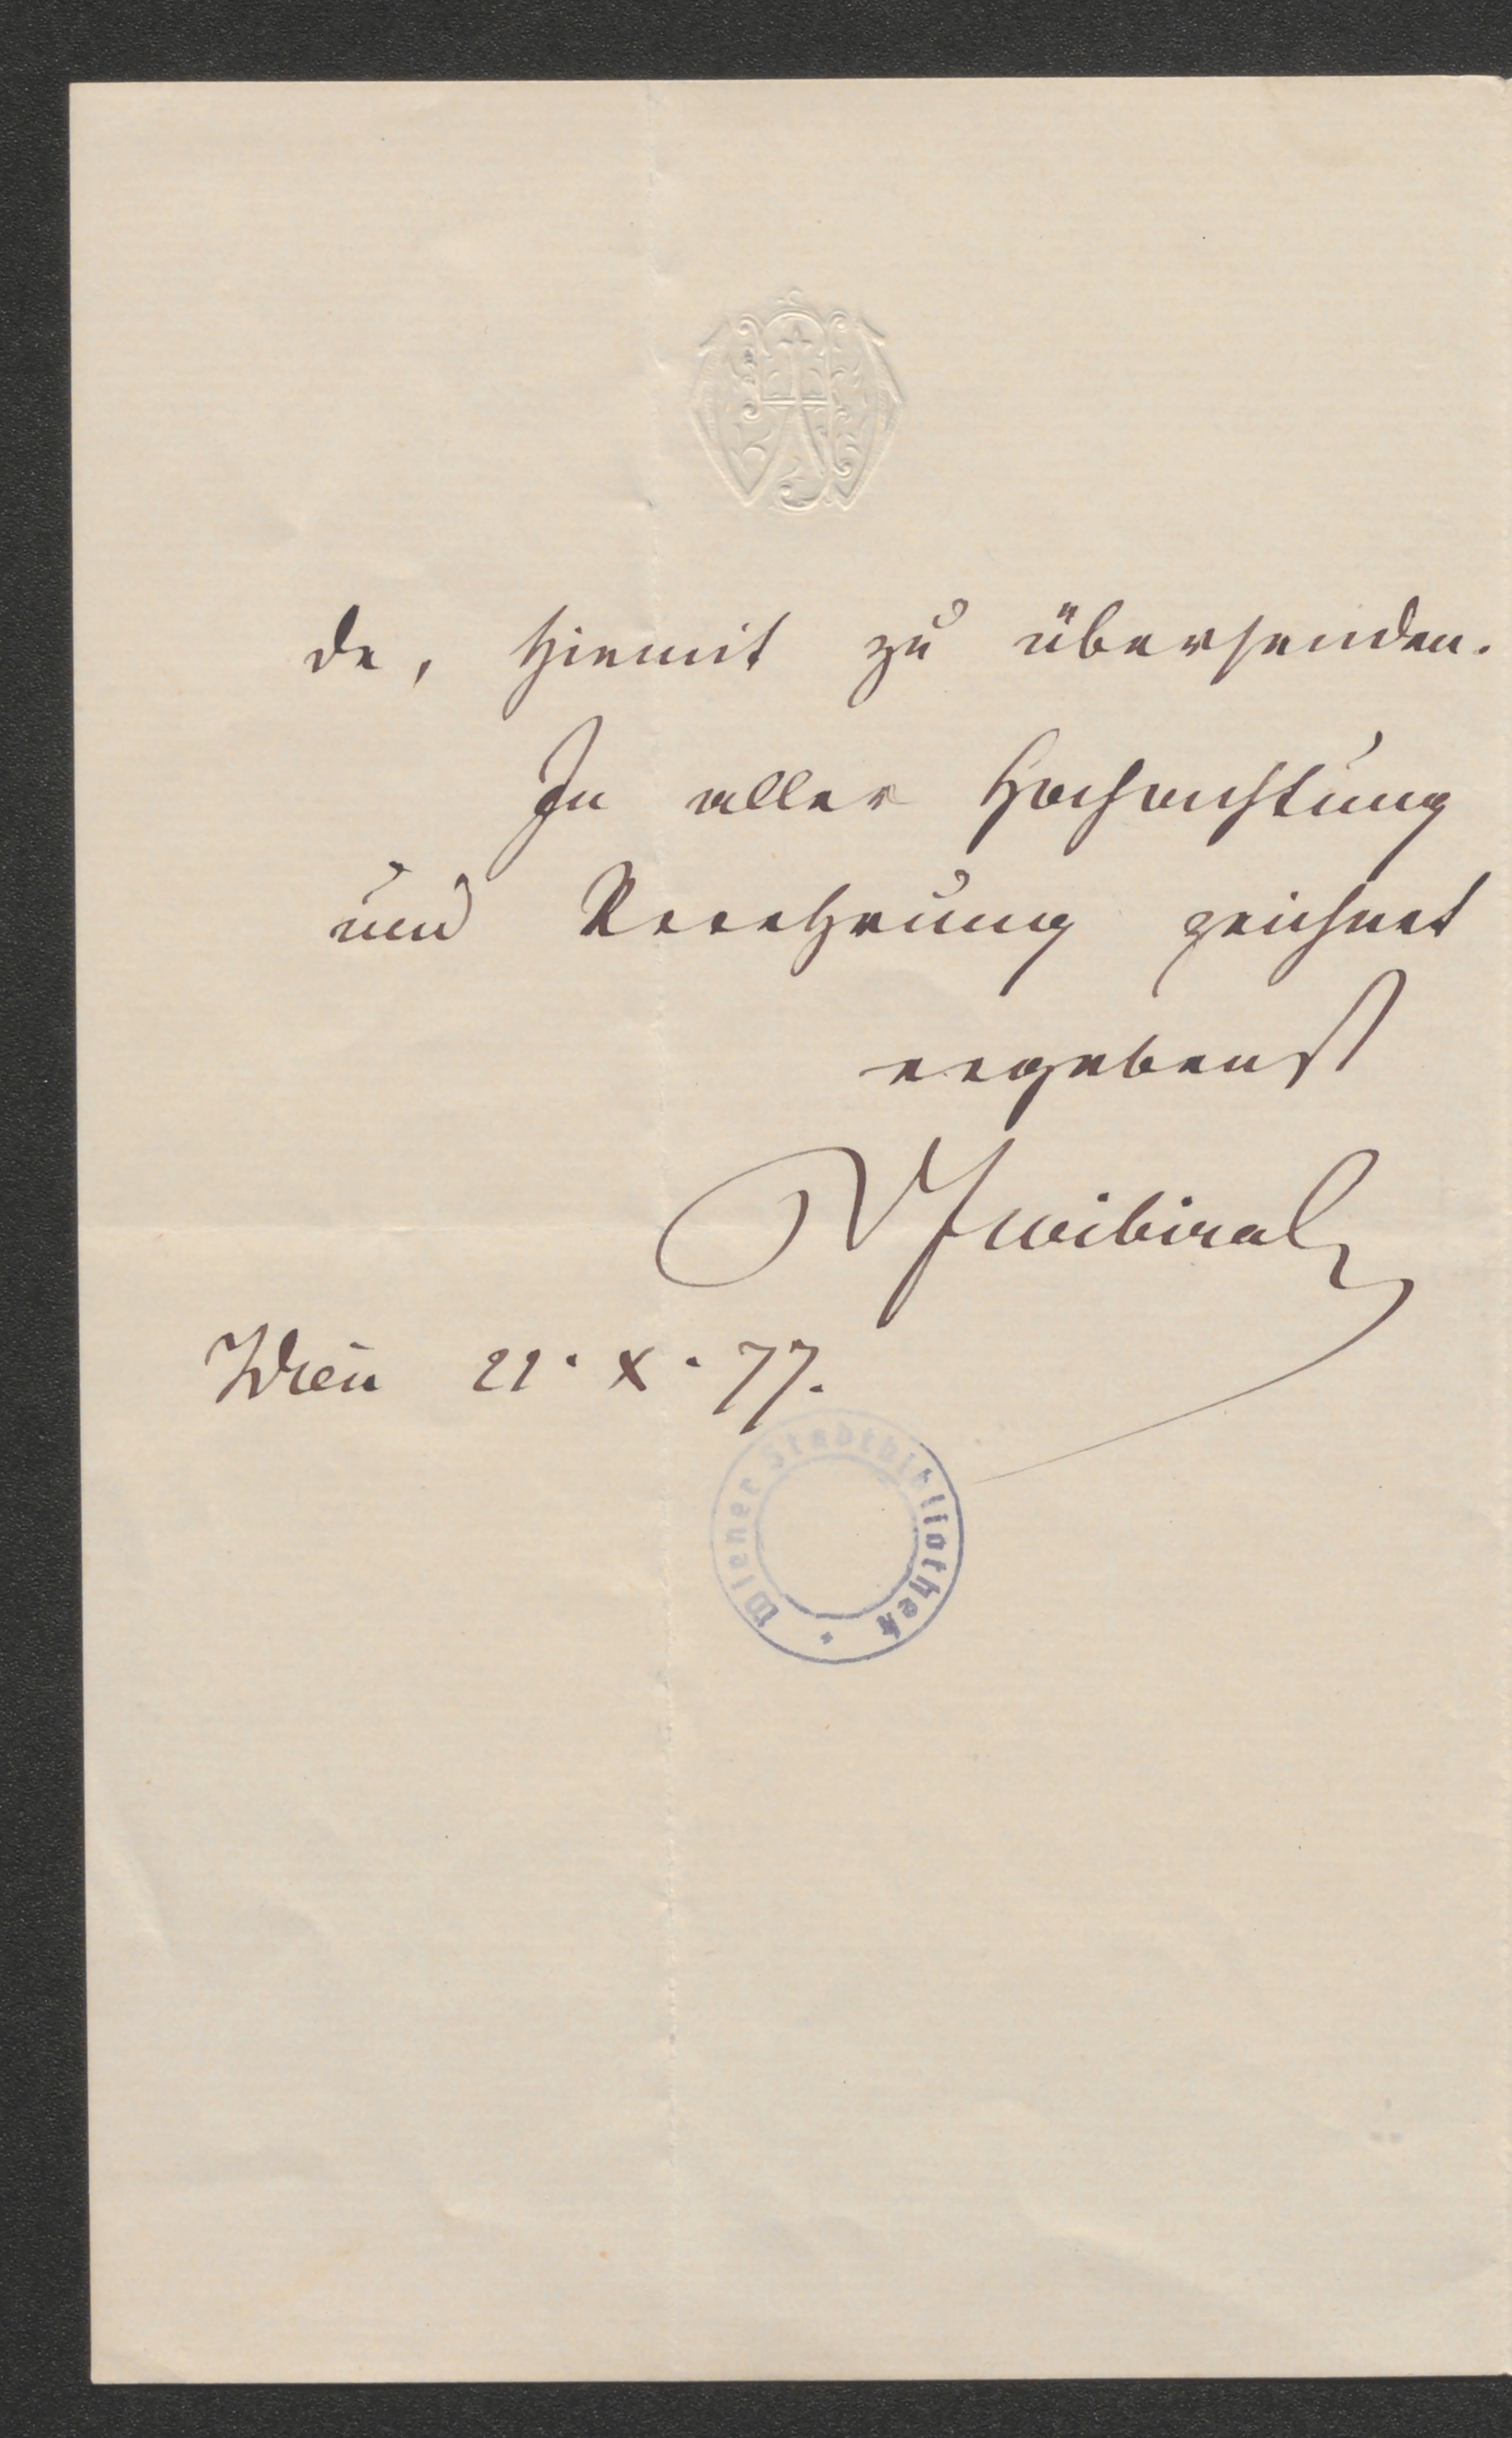 de, hiemit zu übersenden.
In aller Hochachtung
und Verehrung zeichnet
ergebenst
Wien 21. X. 77.
Wiener Stadtbibliothek